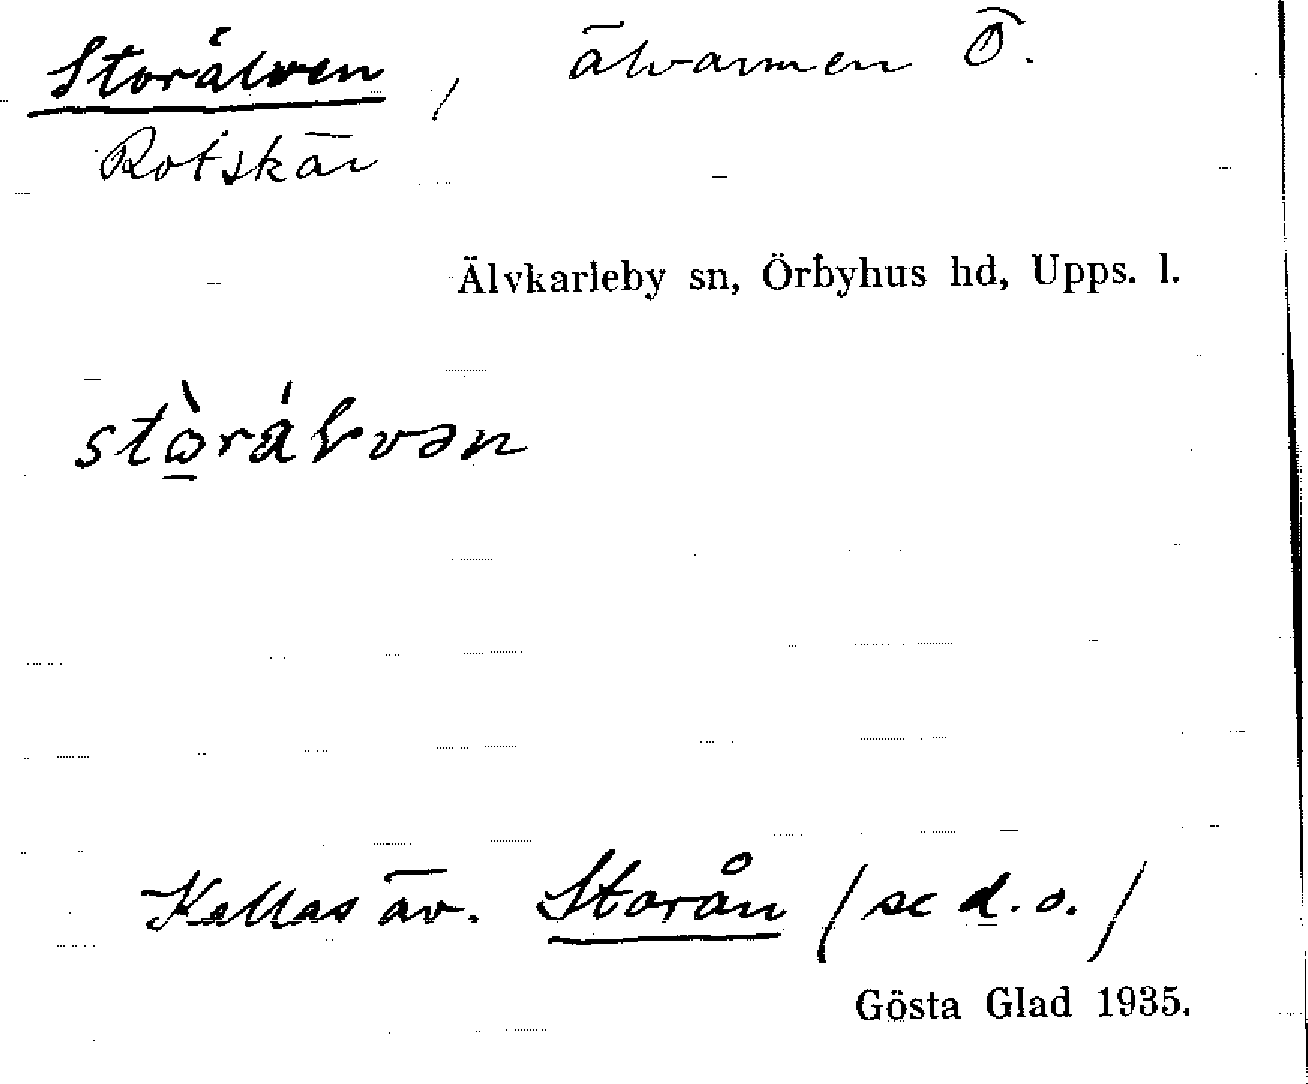 Storälven, älvarmen Ö.
Rotskär
Älvkarleby sn, Örbyhus hd, Upps. l.
stòrálvən
Kallas äv. Storån (se d. o.)
Gösta Glad 1935.